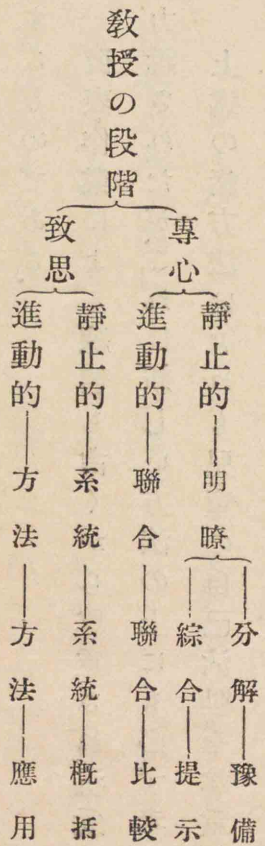 教授の段階
專心
靜止的―明瞭
分解―豫備
綜合―提示
進動的―聯合―聯合―比較
致思
靜止的―系統―系統―概括
進動的―方法―方法―應用